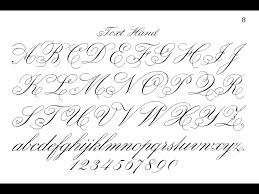 8
Text Hand
ABCDEFGHIJ
KLMNOPQR
STUVWXYZ
abcdefghijklmnopqrstuvwxyz
1234567890